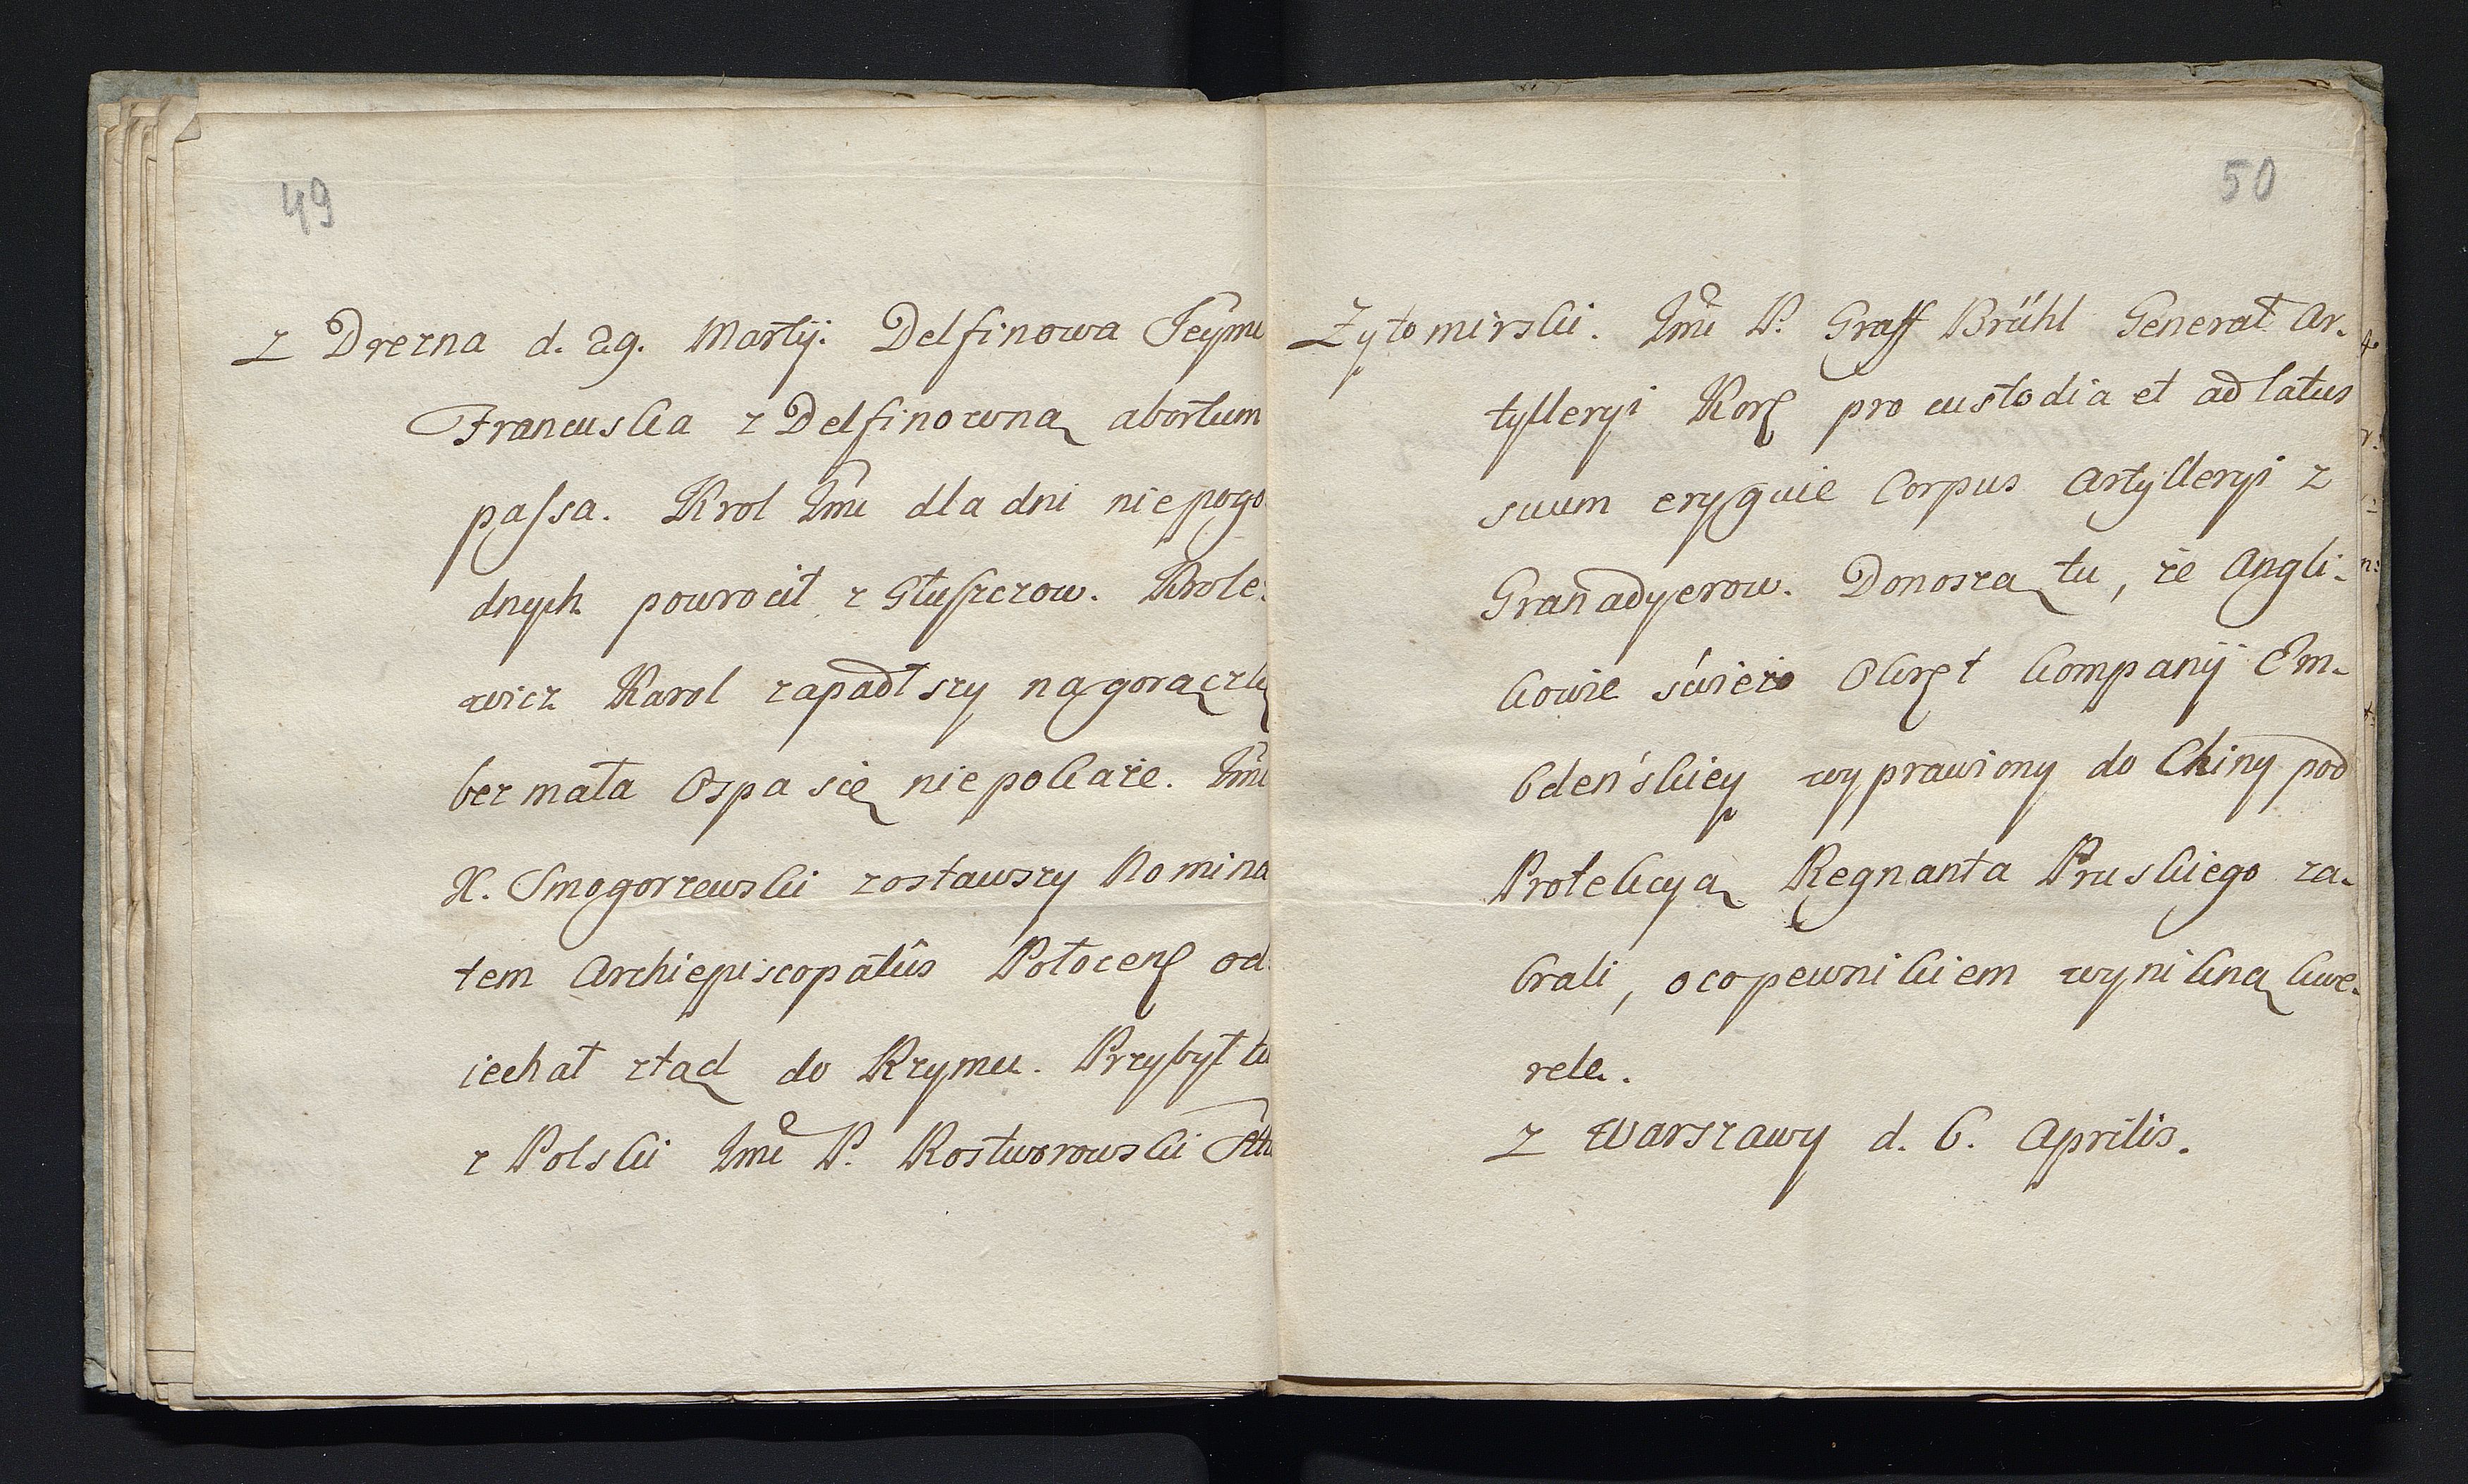 49
z Drezna d. 29. Martij. Delfinowa Jeÿmć
Francuska z Delfinowną abortum
passa. Krol Jmć dla dni niepogo-
dnych powrocił z Głuszczow. Krole-
wicz Karol zapadłszy na gorączkę
bez mała Ospa się nie pokaże. Jmć
X. Smogorzewski zostawszy Nomina
tem Archiepiscopatûs Połocenẛ od-
iechał ztąd do Rzymu. Przybył tu
z Polski Jmć P. Rostworowski
50
Zytomirski. Jmć P. Graff Brühl Generał Ar-
tylleryi Korẛ pro custodia et ad latus
suum eryguie Corpus Artylleryi z
Granadyerow. Donoszą tu, że Angli-
kowie świeżo Okręt Kompanij Em-
bdeńskiey wyprawiony do Chiny pod
Protekcyą Regnanta Pruskiego za-
brali, oco pewnikiem wynikną kwe-
rele.
Z Warszawy d. 6. Aprilis.